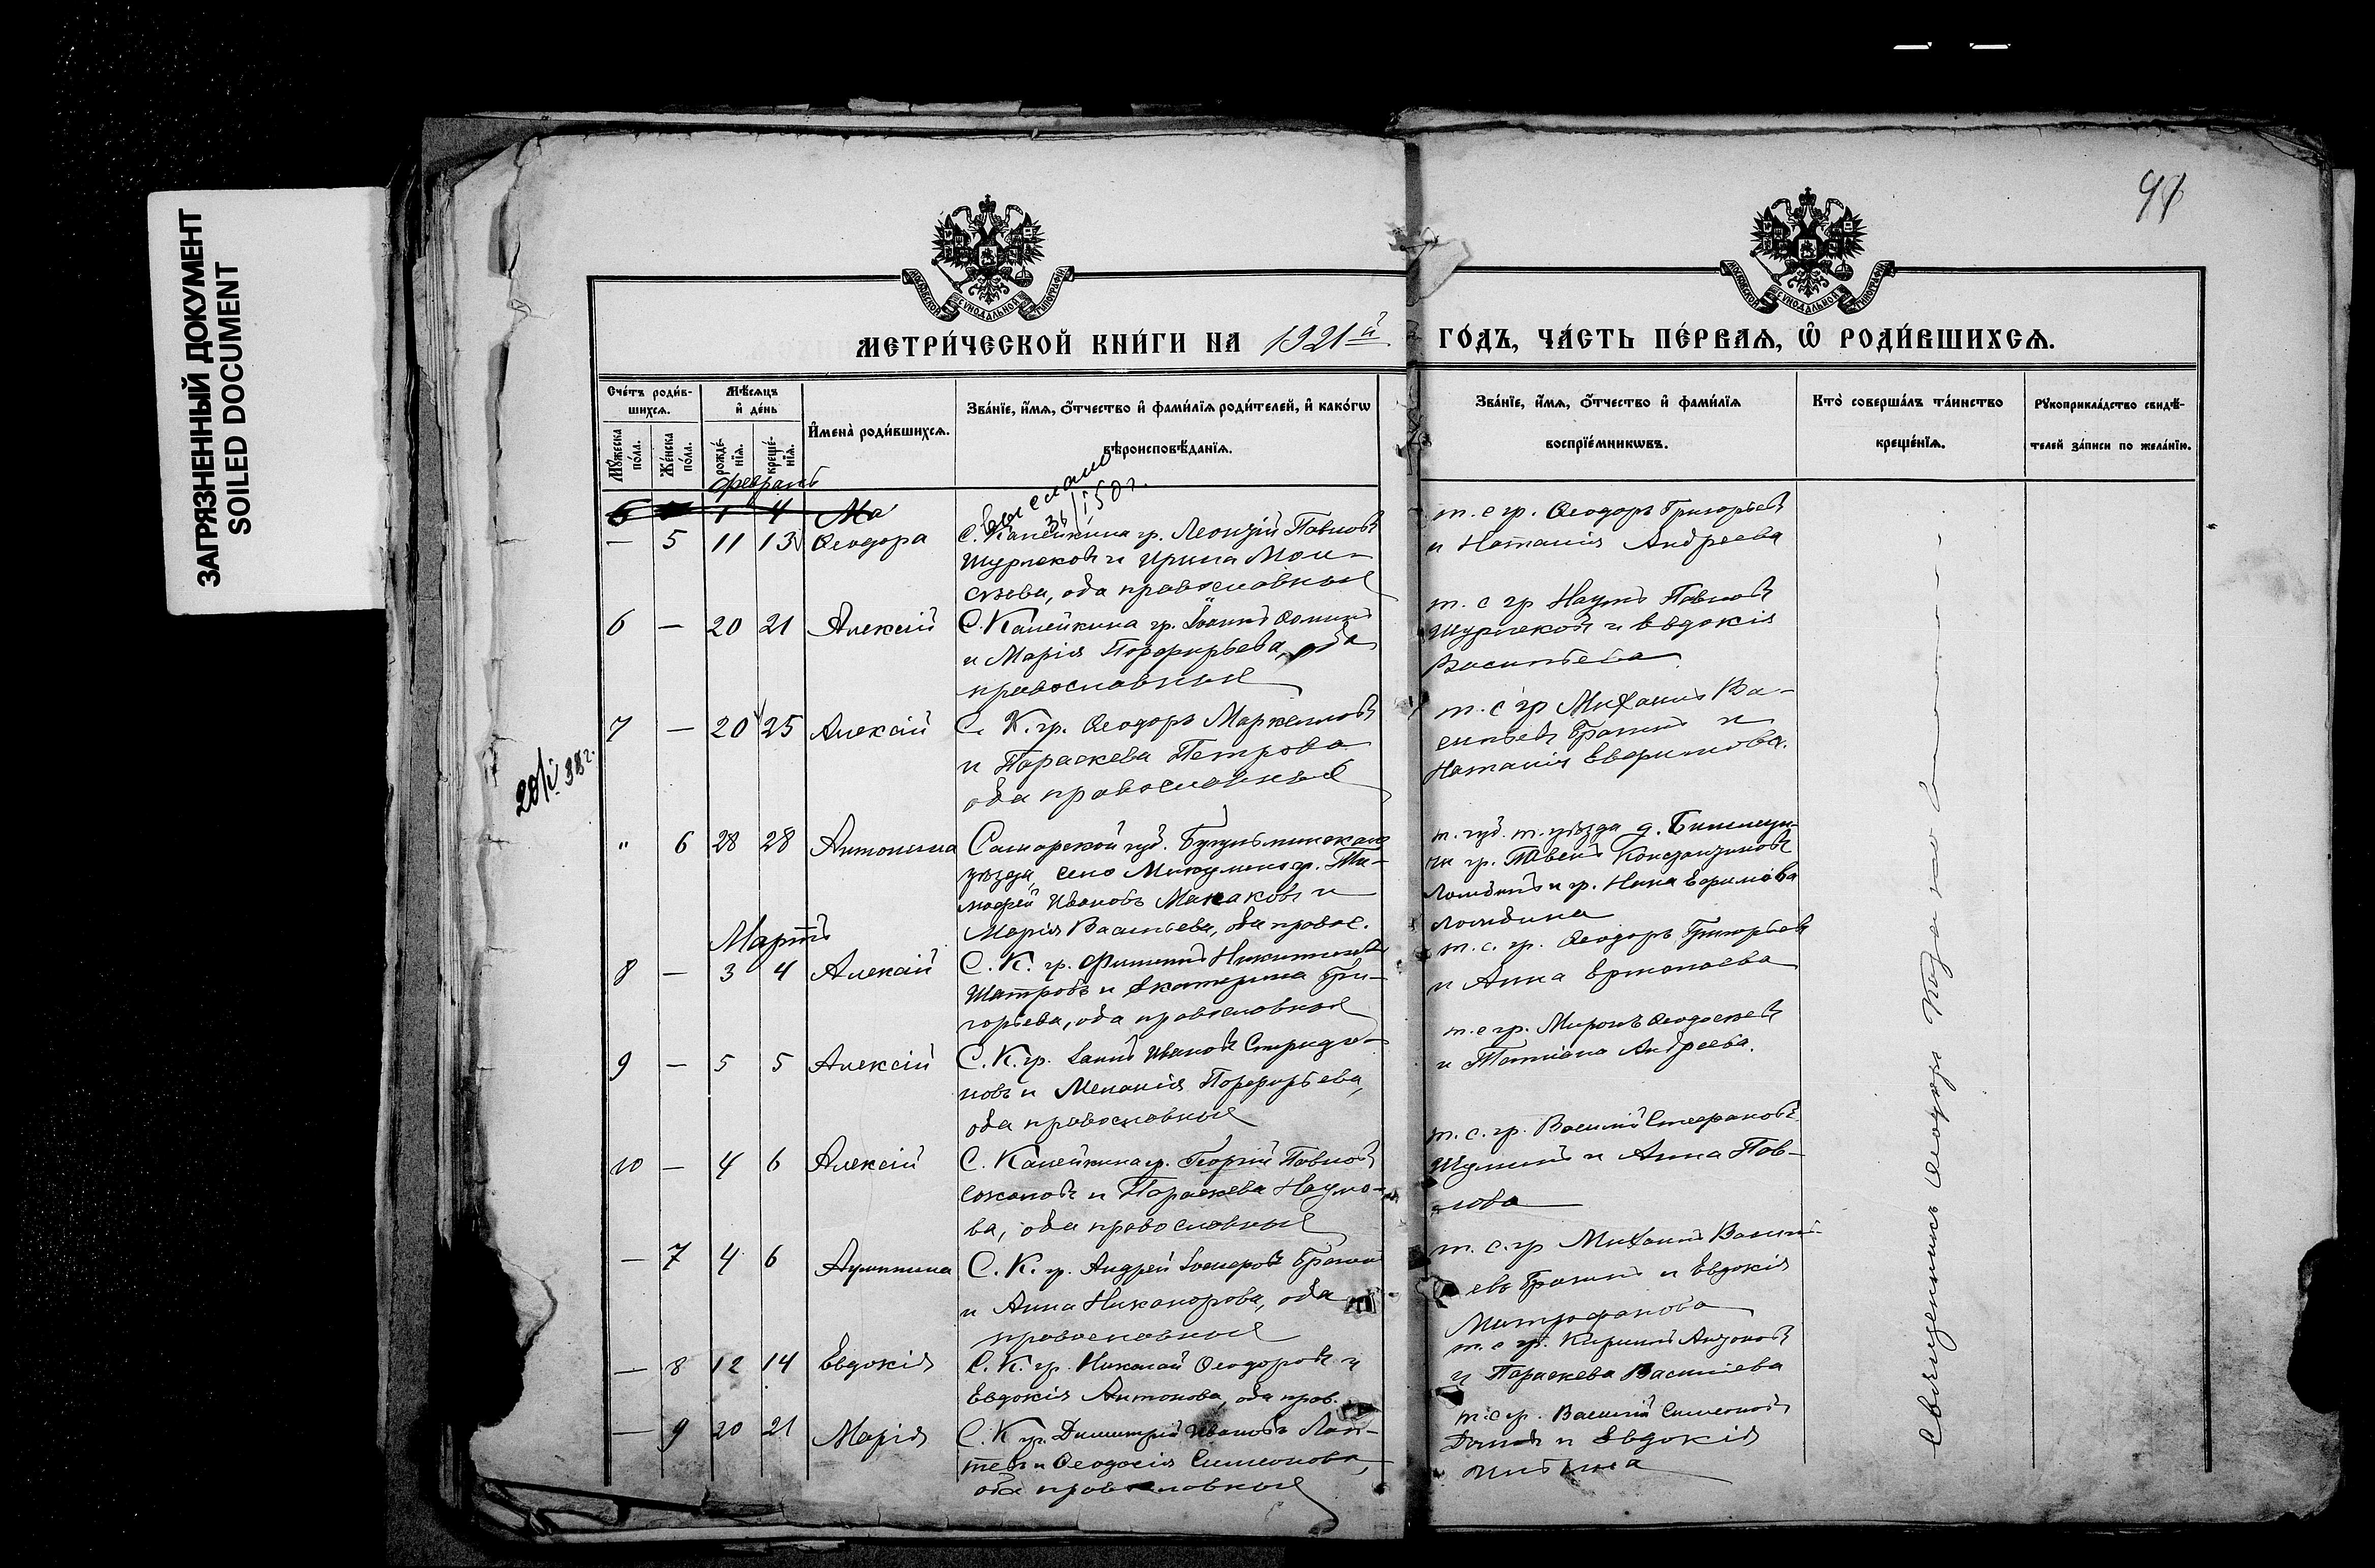 ЗАГРЯЗНЕННЫЙ ДОКУМЕНТ
SOILED DOCUMENT
МОСКОВСКОЙ СѴНОДАЛЬНОЙ ТИПОГРАФІИ
МОСКОВСКОЙ СѴНОДАЛЬНОЙ ТИПОГРАФІИ
МЕТРИ́ЧЕСКОЙ КНИ́ГИ НА 1921й ГО́ДЪ, ЧА́СТЬ ПЕ́РВАѦ, Ѡ҆ РОДИ́ВШИХСѦ.
Сче́тъ роди́в-
шихсѧ.
Мꙋ́жеска по́ла.
Же́нска по́ла.
Мѣ́сѧцъ и҆ де́нь
рожде́-нїѧ.
креще́-нїѧ.
И҆мена̀ роди́вшихсѧ.
Зва́нїе, и҆́мѧ, о҆́тчество и҆ фами́лїѧ роди́телей, и҆ како́гѡ
вѣроисповѣ́данїѧ.
Зва́нїе, и҆́мѧ, о҆́тчество и҆ фами́лїѧ
воспрїе́мникѡвъ.
Кто̀ соверша́лъ та́инство
креще́нїѧ.
Рꙋкоприкла́дство свидѣ́-
телей за́писи по жела́нїю.
февраль
выслано
5 1 4 Ма
— 5 11 13 Ѳеодора
С. Канейкина гр. Леонтій Павловъ
Шурлековъ и Ирина Мои-
сѣева, оба православные
т. с гр. Ѳеодоръ Григорьевъ
и Наталія Андреева
6 — 20 21 Алексій
С. Канейкина гр. Іоаннъ
и Марія Порфирьева, оба
православные
т. с гр Наумъ Павловъ
Шурлековъ и Евдокія
Васильева
7 — 20 25 Алексій
С. К. гр. Ѳеодоръ Маркелловъ
и Параскева Петрова
оба православные
т. с гр Михаилъ Ва-
сильевъ и
Наталія Ефимова.
28/I 38 г.
" 6 28 28 Антонина
Самарской губ. Бугульминскаго
уѣзда, село Микулино гр. Ти-
мофей Ивановъ Макаковъ и
Марія Васильева, оба правос.
т. губ. т. уѣзда д.
гр. Павелъ Константиновъ
и гр. Нина Ефимова
Мартъ
8 — 3 4 Алексій
С. К. гр. Филиппъ Никитинъ
Шатровъ и Екатерина Гри-
горьева, оба православные
т. с. гр. Ѳеодоръ Григорьевъ
и Анна Ермолаева
9 — 5 5 Алексій
С. К. гр. Ивановъ Спиридо-
новъ и Меланія Порфирьева,
оба православные
т. с гр. Миронъ
и Татіана Андреева.
10 — 4 6 Алексій
С. Канейкина гр. Георгій Павловъ
и Параскева Наумо-
ва, оба православные
т. с. гр. Василій Стефановъ
и Анна Пав-
лова
— 7 4 6
С. К. гр. Андрей
и Анна Никанорова, оба
православные
т. с. гр Михаилъ Василь-
евъ и Евдокія
Митрофанова
— 8 12 14 Евдокія
С. К. гр. Николай Ѳеодоровъ и
Евдокія Антонова, оба прав.
т. с гр. Кириллъ Антоновъ
и Параскева Васильева
— 9 20 21 Марія
С. К гр. Димитрій Ивановъ Лап-
тевъ и Ѳеодосія Симеонова,
оба православные
т. с гр. Василій Симеоновъ
и Евдокія
Священникъ Ѳеодоръ